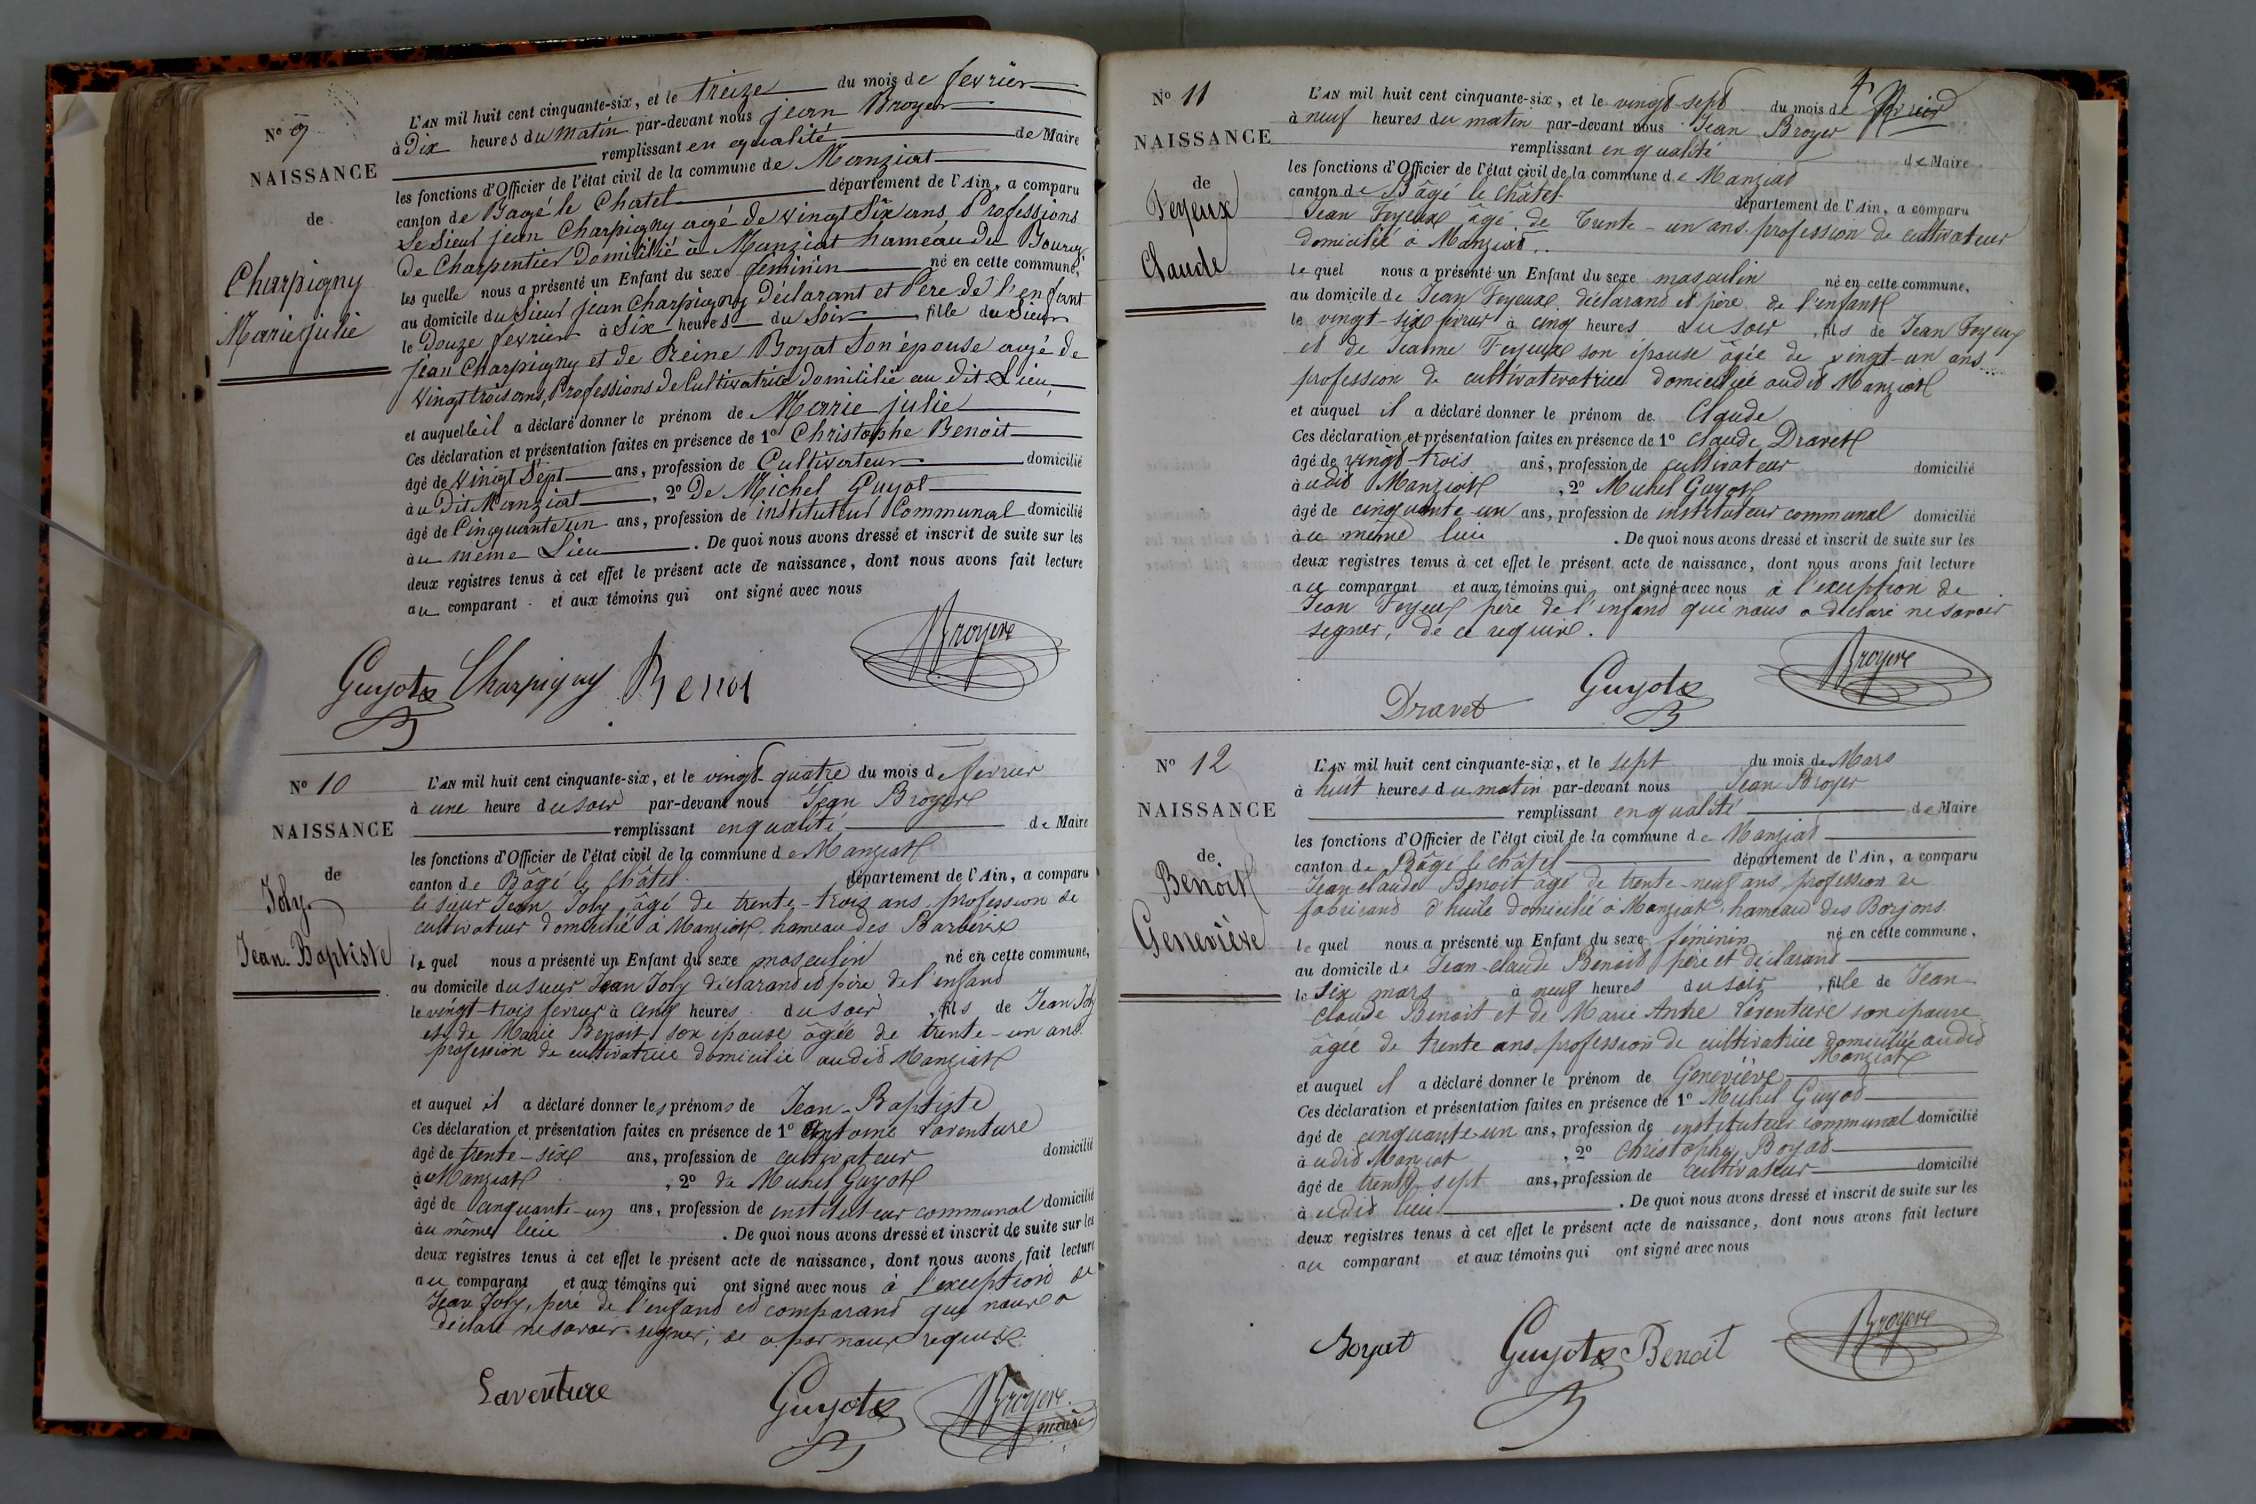 N° 9
NAISSANCE
de
Charpigny
Marie julie
L'AN mil huit cent cinquante-six, et le treize du mois de fevrier
à Dix heures du matin par-devant nous jean Broyer
remplissant en qualité de Maire
les fonctions d'Officier de l'état civil de la commune de Manziat
canton de Bagé le Chatel département de l'Ain, a comparu
Le Sieur jean Charpigny agé de vingt Six ans, Professions
De Charpentier Domicilié à Manziat hameau du
les quelle nous a présenté un Enfant du sexe féminin né en cette commune,
au domicile du Sieur jean Charpigny Déclarant et Père de l'enfant
le Douze fevrier à Six heures du Soir fille du Sieur
jean Charpigny et de Reine Boyat Son épouse agé de
Vingt trois ans, Professions de Cultivatrice Domicilié au dit Lieu
et auquelle il a déclaré donner le prénom de Marie julie
Ces déclaration et présentation faites en présence de 1° Christophe Benoit
âgé de Vingt Sept ans, profession de Cultivateur domicilié
à u Dit Manziat , 2° De Michel Guyot
âgé de Cinquante un ans, profession de instituteur Communal domicilié
à u même Lieu . De quoi nous avons dressé et inscrit de suite sur les
deux registres tenus à cet effet le présent acte de naissance, dont nous avons fait lecture
au comparant et aux témoins qui ont signé avec nous
Guyot Charpigny Benoi Broyere
N° 10
NAISSANCE
de
Joly
Jean-Baptiste
L'AN mil huit cent cinquante-six, et le vingt-quatre du mois de fevrier
à une heure du soir par-devant nous Jean Broyere
remplissant en qualité de Maire
les fonctions d'Officier de l'état civil de la commune de Manziat
canton de Bâgé le Châtel département de l'Ain, a comparu
le sieur Jean Joly âgé de trente-trois ans, profession de
cultivateur domicilié à Manziat hameau des
le quel nous a présenté un Enfant du sexe masculin né en cette commune,
au domicile du sieur Jean Joly déclarand et père de l'enfand
le vingt-trois fevrier à cinq heures du soir , fils de Jean Joly
et de Marie Benoit son épouse âgée de trente-un ans
profession de cultivatrice domicilié audit Manziat
et auquel il a déclaré donner les prénoms de Jean-Baptiste
Ces déclaration et présentation faites en présence de 1° Antoine Laventure
âgé de trente-six ans, profession de cultivateur domicilié
à Manziat , 2° de Michel Guyot
âgé de Cinquante-un ans, profession de instituteur communal domicilié
à u même lieu . De quoi nous avons dressé et inscrit de suite sur les
deux registres tenus à cet effet le présent acte de naissance, dont nous avons fait lecture
au comparant et aux témoins qui ont signé avec nous à l'exception de
Jean Joly, père de l'enfand et comparand qui nous a
déclaré ne savoir signer, de ce par nous requis.
Laventure Guyot Broyere maire
4
N° 11
NAISSANCE
de
Feyeux
Claude
L'AN mil huit cent cinquante-six, et le vingt-sept du mois de février
à neuf heures du matin par-devant nous Jean Broyer
remplissant en qualité de Maire
les fonctions d'Officier de l'état civil de la commune de Manziat
canton de Bâgé le Châtel département de l'Ain, a comparu
Jean Feyeux âgé de Trente-un ans profession de cultivateur
domicilié à Manziat
le quel nous a présenté un Enfant du sexe masculin né en cette commune,
au domicile de Jean Feyeux déclarand et père de l'enfant
le vingt-six fevrier à cinq heures du soir , fils de Jean Feyeux
et de Jeanne Feyeux son épouse âgée de vingt-un ans
profession de cultivativatrice domiciliée audit Manziat
et auquel il a déclaré donner le prénom de Claude
Ces déclaration et présentation faites en présence de 1° Claude Dravet
âgé de vingt-trois ans, profession de cultivateur domicilié
à udit Manziat , 2° Michel Guyot
âgé de cinquante-un ans, profession de instituteur communal domicilié
à u même lieu . De quoi nous avons dressé et inscrit de suite sur les
deux registres tenus à cet effet le présent acte de naissance, dont nous avons fait lecture
au comparant et aux témoins qui ont signé avec nous à l'exception de
Jean Feyeux père de l'enfand qui nous a déclaré ne savoir
signer, de ce requis.
Dravet Guyot Broyere
N° 12
NAISSANCE
de
Benoit
Geneviève
L'AN mil huit cent cinquante-six, et le sept du mois de Mars
à huit heures du matin par-devant nous Jean Broyer
remplissant en qualité de Maire
les fonctions d'Officier de l'état civil de la commune de Manziat
canton de Bâgé le Châtel département de l'Ain, a comparu
Jean Claude Benoit âgé de trente-neuf ans, profession de
fabricand d'huile domicilié à Manziat, hameau des Borjons
le quel nous a présenté un Enfant du sexe féminin né en cette commune,
au domicile de Jean-claude Benoit père et déclarand
le Six mars à neuf heures du soir , fille de Jean
Claude Benoit et de Marie Anne Laventure son épouse
âgée de trente ans, profession de cultivatrice domiciliée audit
Manziat
et auquel il a déclaré donner le prénom de Geneviève
Ces déclaration et présentation faites en présence de 1° Michel Guyot
âgé de cinquante-un ans, profession de instituteur communal domicilié
à udit Manziat , 2° Christophe Boyat
âgé de trente-sept ans, profession de cultivateur domicilié
à udit lieu . De quoi nous avons dressé et inscrit de suite sur les
deux registres tenus à cet effet le présent acte de naissance, dont nous avons fait lecture
au comparant et aux témoins qui ont signé avec nous
Boyat Guyot Benoit Broyere